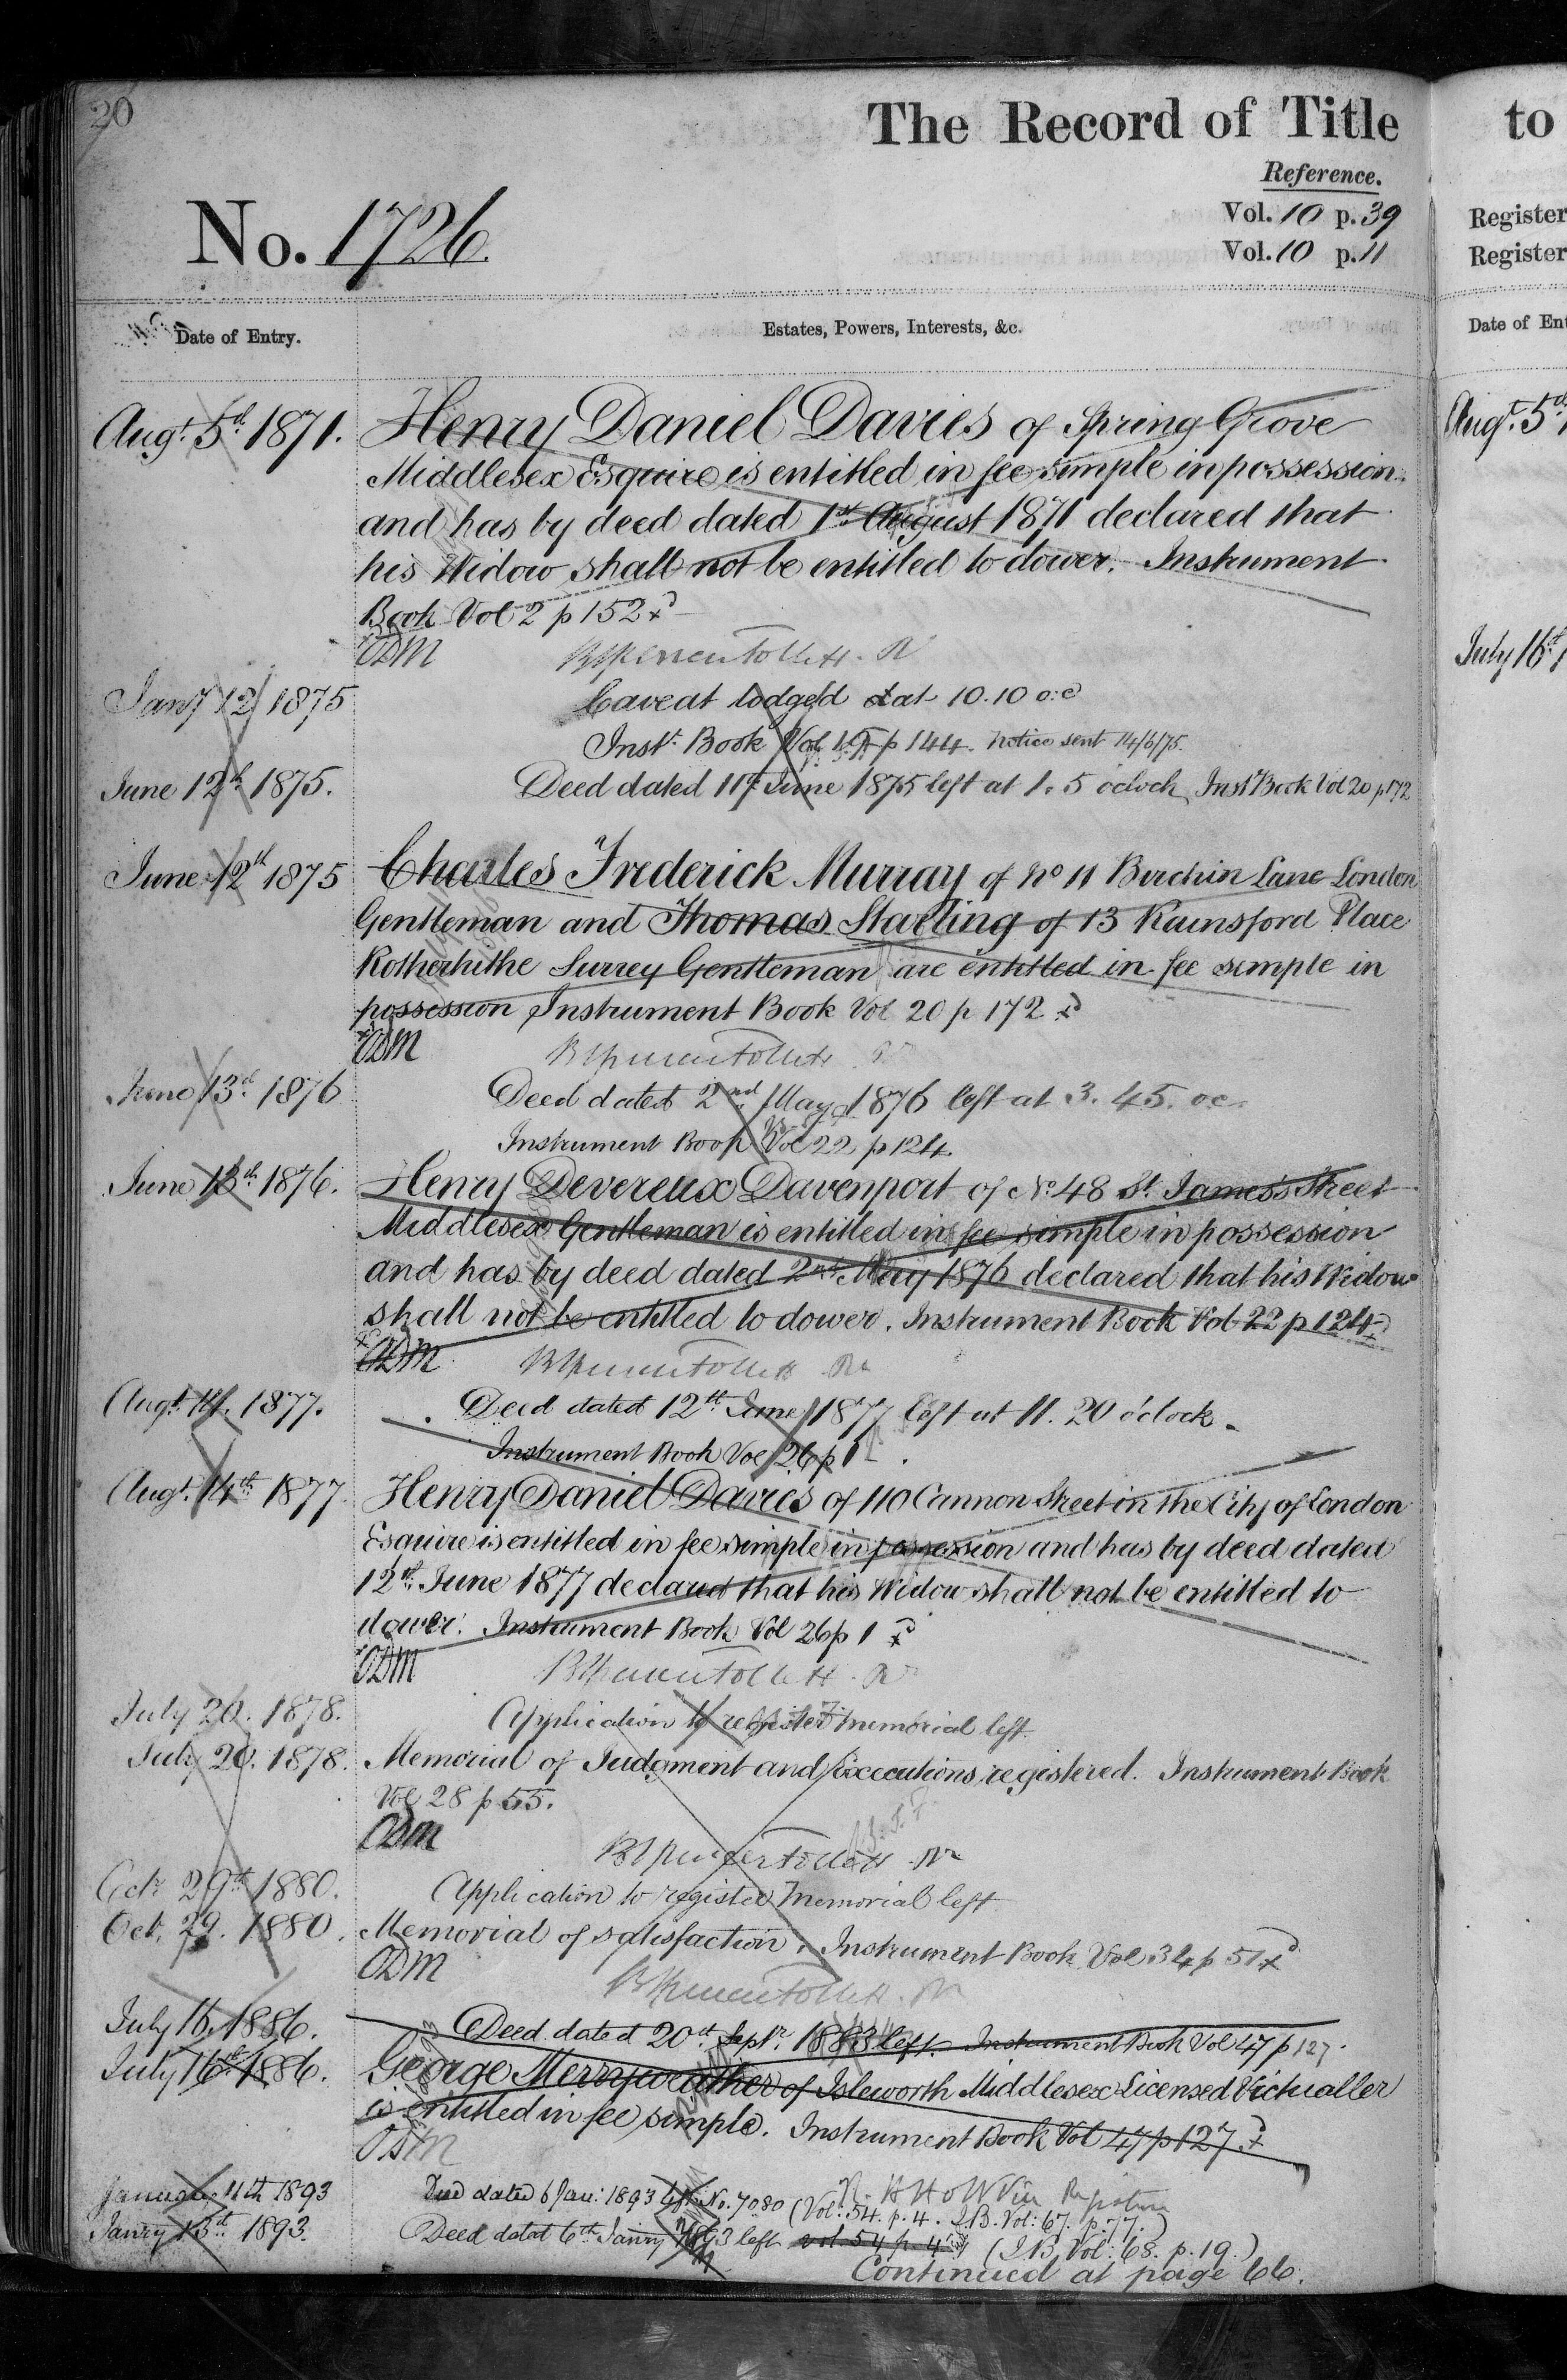 20
The Record of Title
Reference.
No. 1726.
Vol. 10 p. 39
Vol. 10 p. 11
Date of Entry.
Estates, Powers, Interests, &c.
Augt. 5th 1871. Henry Daniel Davies of Spring Grove
Middlesex Esquire is entitled in fee simple in possession
and has by deed dated 1st August 1871 declared that
his Widow shall not be entitled to dower. Instrument
Book Vol 2 p 152
Jany 12 1875 Caveat lodged at 10.10 o.c
Inst. Book Vol 19 p 144. notice sent 14/6/75.
June 12th 1875. Deed dated 11th June 1875 left at 1.5 oclock Inst Book Vol 20 p 172
June 12th 1875 Charles Frederick Murray of No 11 Birchin Lane London
Gentleman and Thomas Starling of 13 Rainsford Place
Rotherhithe Surrey Gentleman are entitled in fee simple in
possession Instrument Book Vol 20 p 172
June 13th 1876 Deed dated 2nd May 1876 left at 3.45. oc.
Instrument Book Vol 22 p 124.
June 13th 1876. Henry Devereux Davenport of No 48 St. James's Street
Middlesex Gentleman is entitled in fee simple in possession
and has by deed dated 2nd May 1876 declared that his Widow
shall not be entitled to dower. Instrument Book Vol 22 p 124
Augt. 14. 1877. Deed dated 12th June 1877 left at 11.20 o'clock.
Instrument Book Vol 26 p 1
Augt. 14th 1877. Henry Daniel Davies of 110 Cannon Street in the City of London
Esquire is entitled in fee simple in possession and has by deed dated
12th June 1877 declared that his Widow shall not be entitled to
dower. Instrument Book Vol 26 p 1
July 20. 1878. Application to register memorial left.
July 20. 1878. Memorial of Judgment and Executions registered. Instrument Book
Vol 28 p 55.
Octr. 29th 1880. Application to register memorial left.
Oct. 29. 1880. Memorial of satisfaction. Instrument Book Vol 34 p 51
July 16. 1886. Deed dated 20th Septr. 1883 left. Instrument Book Vol 47 p 127.
July 16th 1886. George Merryweather of Isleworth Middlesex Licensed Victualler
is entitled in fee simple. Instrument Book Vol 47 p 127
January 11th 1893 Deed dated 6 Jan: 1893 left No. 7080 (Vol: 54. p. 4. I.B. Vol: 67. p. 77.)
Janry 13th 1893. Deed dated 6th Janry 1893 left vol 54 p. 4 (I.B. Vol: 68. p. 19.)
Continued at page 66.
to
Register
Register
Date of Ent
Augt. 5th
July 16th